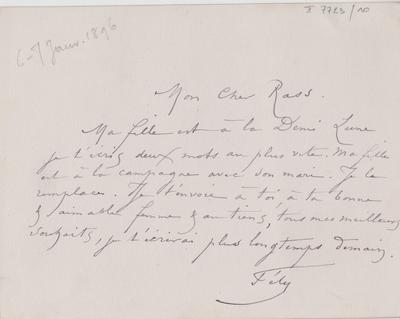 II 7723/10
6-7 Janv. 1896
Mon Cher Rass.
Ma fille est à la Demi Lune
je t'écris deux mots au plus vite. Ma fille
est à la campagne avec son mari. Je la
remplace. Je t'envoie à toi, à ta bonne
& aimable femme & aux tiens, tous mes meilleurs
souhaits, je t'écrirai plus longtemps demain.
Fély